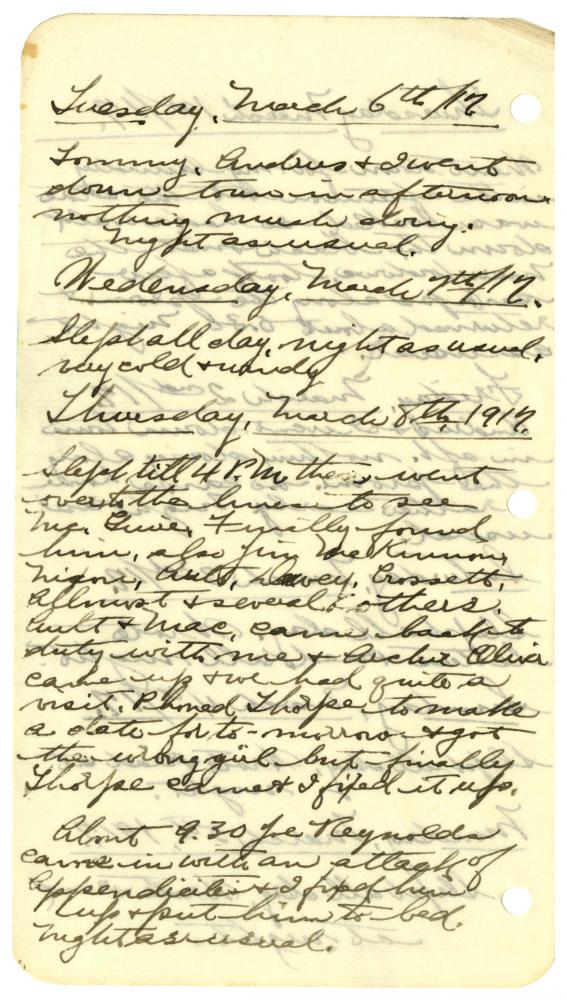 Tuesday, March 6th/17
Tommy, Andrus & I went
down town in afternoon
nothing much doing.
Night as usual.
Wedensday, March 7th/17.
Slept all day, night as usual,
very cold & windy
Thursday, March 8th, 1917.
Slept till 4 P.M then went
over to the lines to see
Mc. Finally found
him, also Jim McKinnon,
Nixon, Ault, Davey, Crossett,
& several others.
Ault & Mac, came back to
duty with me & Archie Oliver
came up & we had quite a
visit. Phoned Thorpe to make
a date for to-morrow & got
the wrong girl but finally
Thorpe came & I fixed it up.
About 9.30 Joe Reynolds
came in with an attack of
& I fixed him
up & put him to bed.
Night as usual.